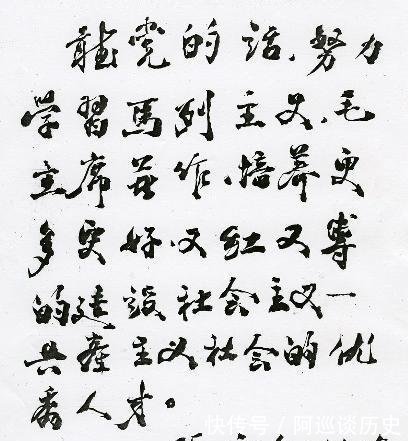 聽党的话、努力
学習馬列主义、毛
主席著作、培养更
多更好又红又專
的建設社会主义一
共產主义社会的优
秀人才。
快传号/阿巡谈历史